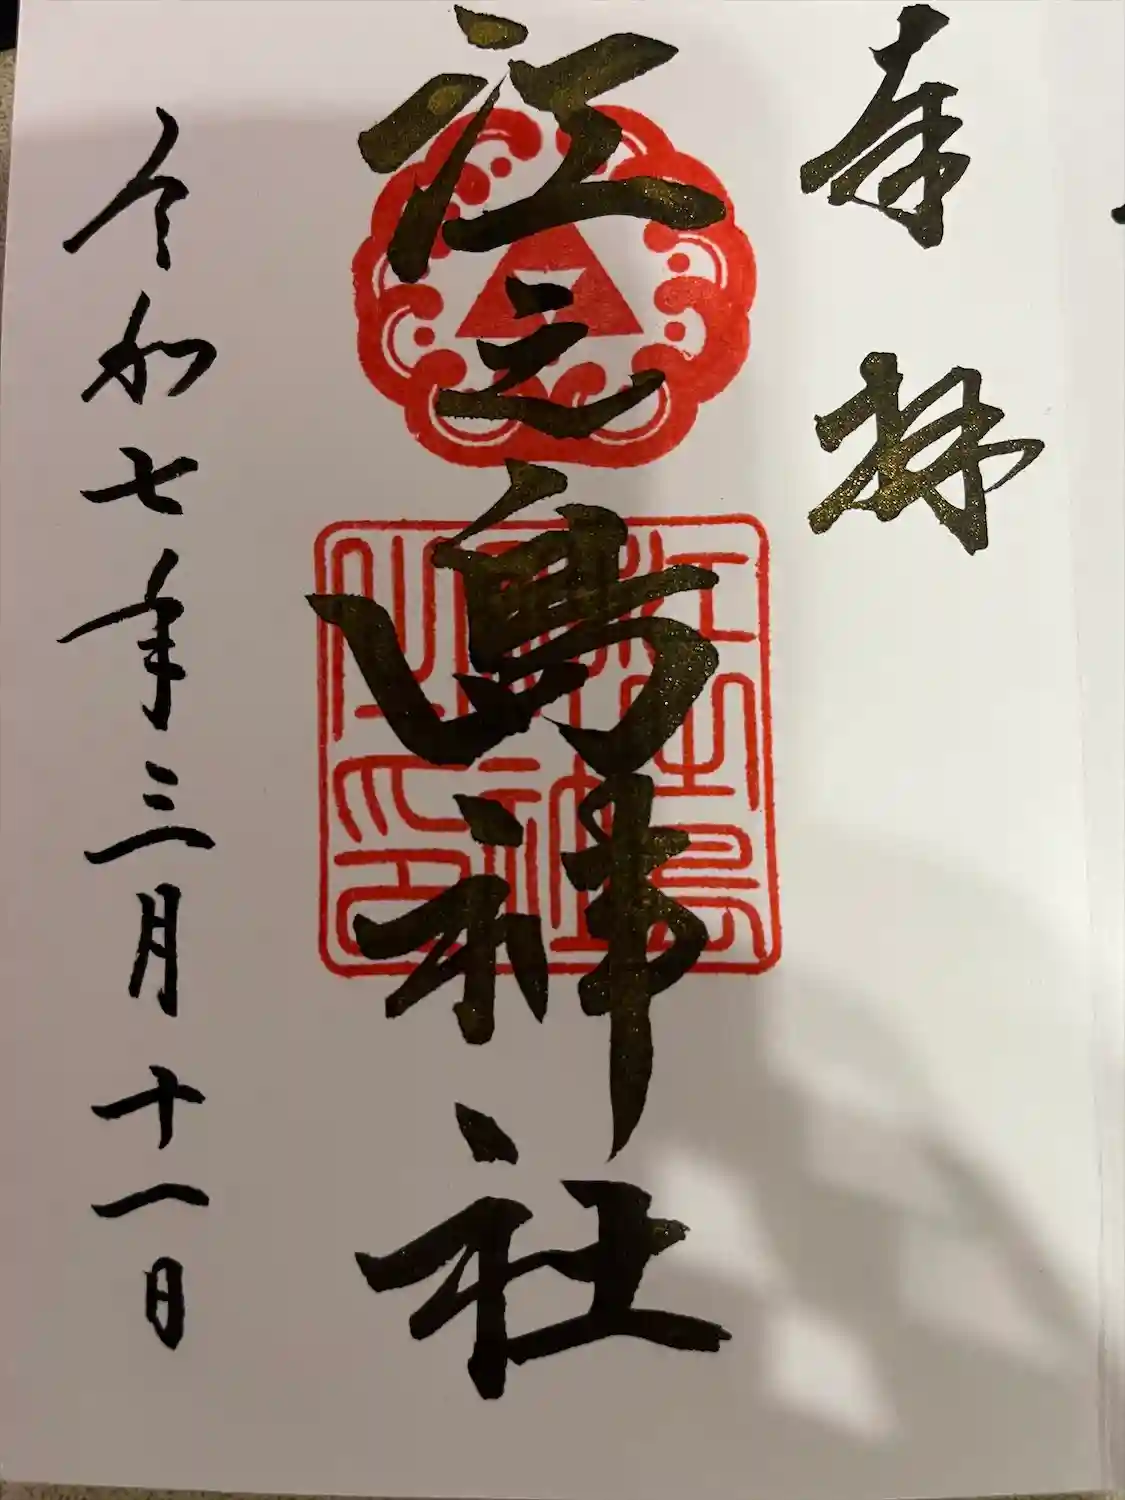 奉拝
江之島神社
江之島神社之印
令和七年三月十一日